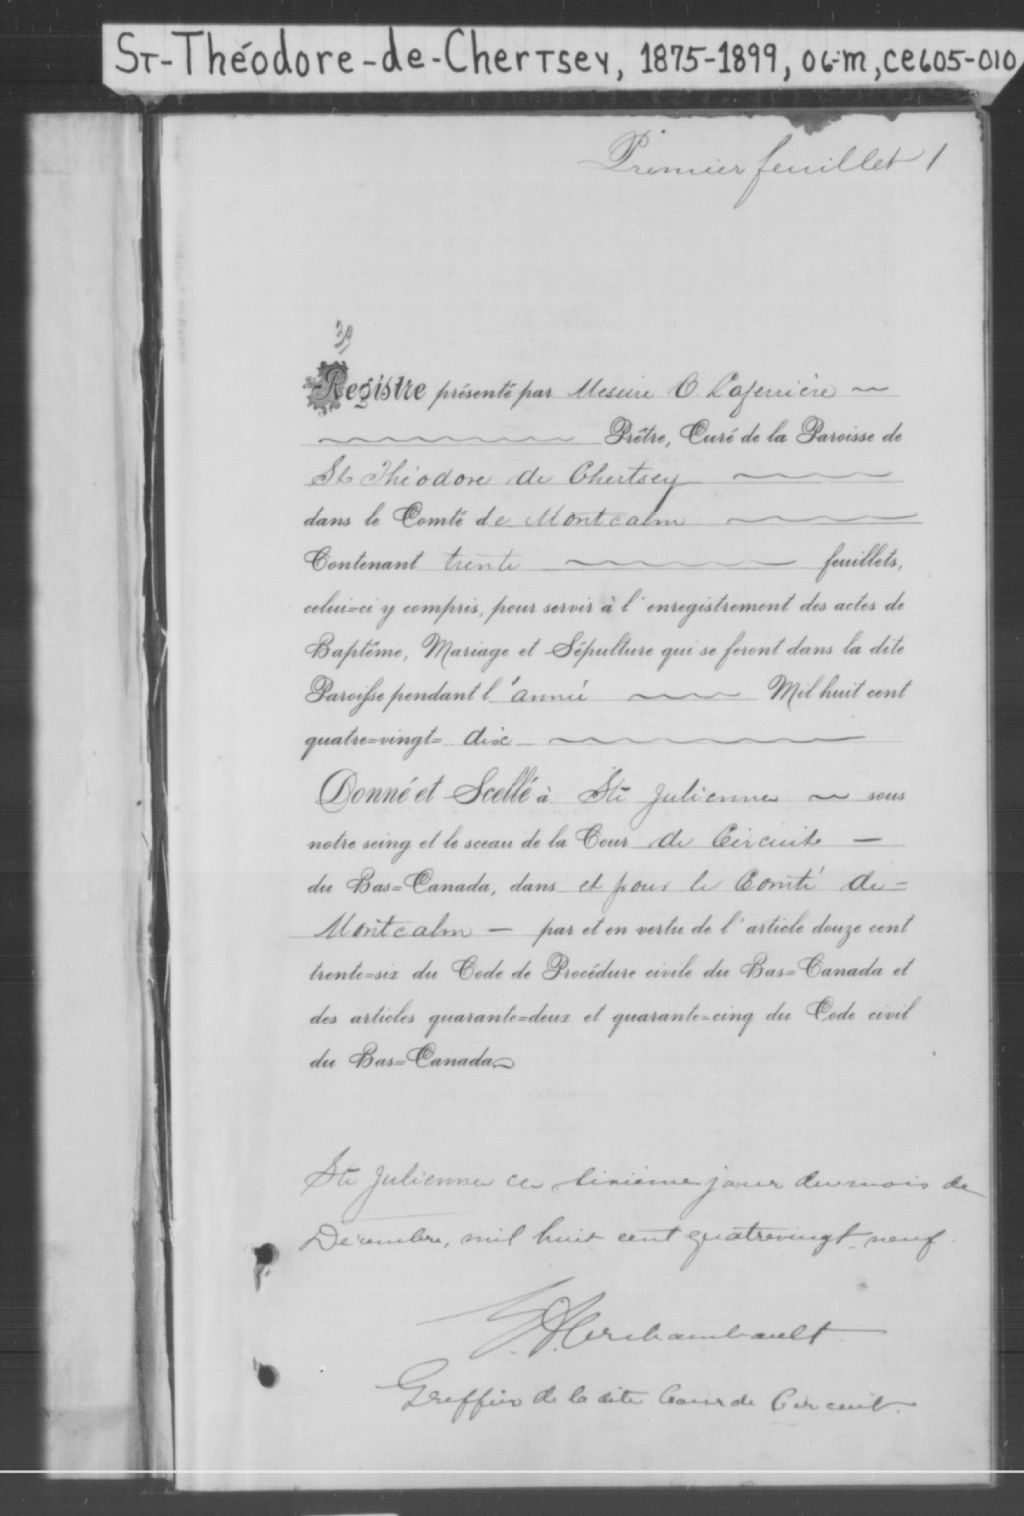 ST-Théodore-de-Chertsey, 1875-1899, 06-M, CE605-010
Premier feuillet 1
30
Registre présenté par Messire O. Laferrière
Prêtre, Curé de la Paroisse de
St Théodore de Chertsey
dans le Comté de Montcalm
Contenant trente feuillets,
celui=ci y compris, pour servir à l'enregistrement des actes de
Baptême, Mariage et Sépulture qui se feront dans la dite
Paroisse pendant l'année Mil huit cent
quatre=vingt= dix
Donné et Scellé à Ste Julienne sous
notre seing et le sceau de la Cour de Circuit —
du Bas=Canada, dans et pour le Comté de =
Montcalm — par et en vertu de l'article douze cent
trente=six du Code de Procédure civile du Bas=Canada et
des articles quarante=deux et quarante=cinq du Code civil
du Bas=Canada
Ste Julienne ce jour du mois de
Décembre, mil huit cent quatrevingt neuf.
Archambault
Greffier de la dite Cour de Circuit.